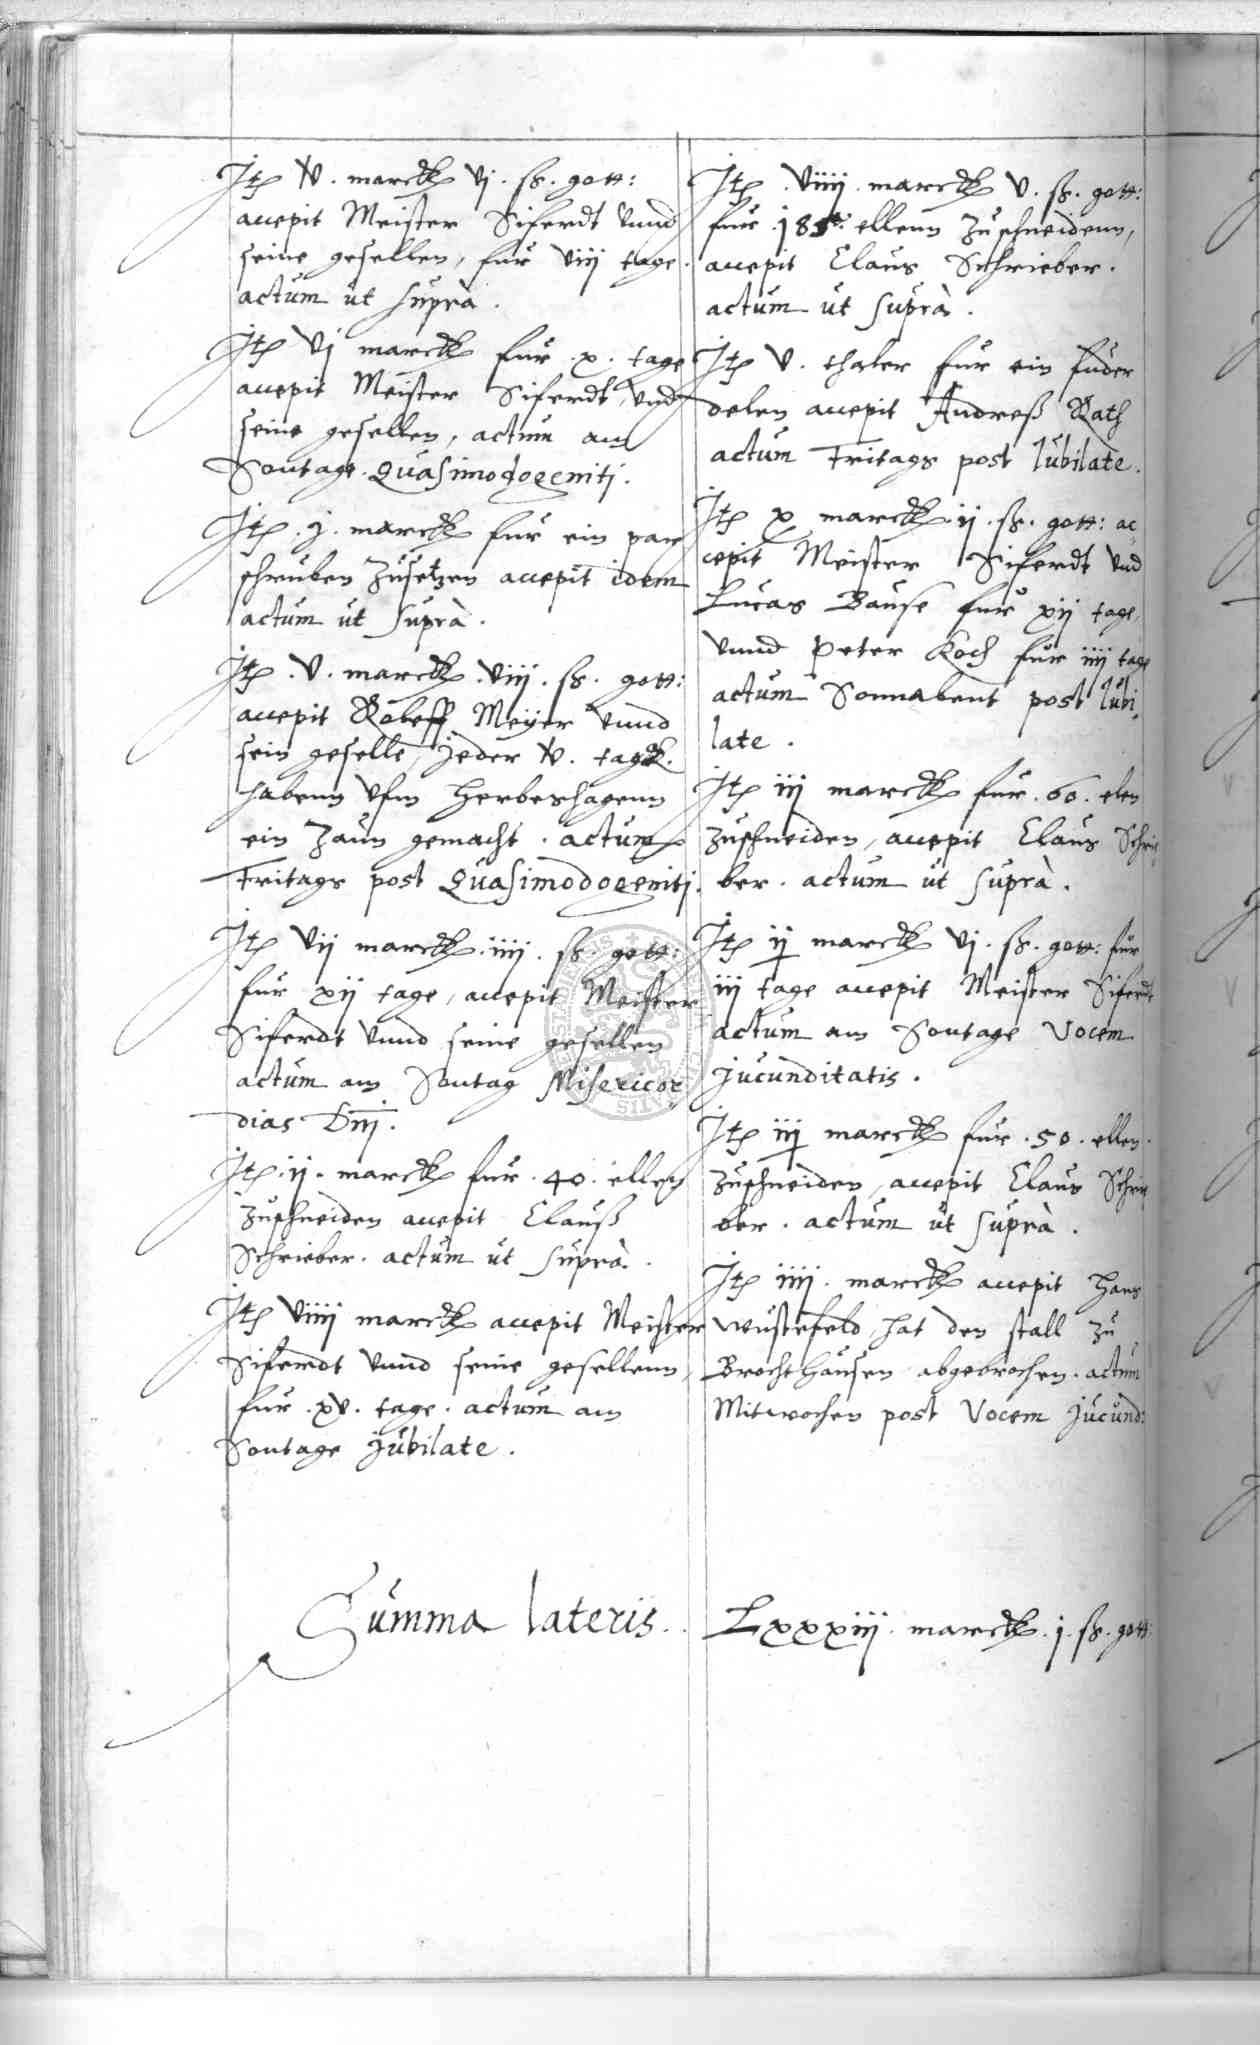 Itē V. marckꝭ vj. ſß. gott:
accepit Meister Siferdt vnnd
seine gesellen, fur viiij tage.
actum ut suprà.
Itē vj marckꝭ fur .x. tage
accepit Meister Siferdt vnd
seine gesellen, actum am
Sontage Quasimodogeniti.
Itē .j. marckꝭ fur ein par
schruben zusetzen accepit idem
actum ut suprà.
Itē .v. marckꝭ .viij. ſß. gott:
accepit Meyer vnnd
sein geselle, jeder V. tage.
habenn vfm Herbeshagenn
ein Zaun gemacht. actum
Fritags post Quasimodogeniti.
Itē vij marckꝭ .iiij. ſß. gott:
fur xij tage, accepit Meister
Siferdt vnnd seine gesellen
actum am Sontag Misericor
dias Dnj.
Itē .ij. marckꝭ fur .40. ellen
zuschneiden accepit Clauß
Schrieber. actum ut suprà.
Itē viiij marckꝭ accepit Meister
Siferdt vnnd seine gesellenn,
fur .xv. tage. actum am
Sontage jubilate.
Itē .viiij. marckꝭ v. ſß. gott:
fur ellenn zuschneidenn,
accepit Claus Schrieber.
actum ut suprà.
Itē V. thaler fur ein fuder
delen accepit Andreß Rath
actum Fritags post Iubilate.
Itē x marckꝭ .ij. ſß. gott: ac
cepit Meister Siferdt vnd
Lucas Bause fur xij tage,
vnnd Peter Koch fur iiij tage
actum Sonnabent post Iubi
late.
Itē iij marckꝭ fur .60. elen
zuschneiden, accepit Claus Schrie
ber. actum ut suprà.
Itē ij marckꝭ vj. ſß. gott: fur
iij tage accepit Meister Siferdt
actum am Sontage Vocem
jucunditatis.
Itē iij marckꝭ fur .50. ellen.
zuschneiden, accepit Claus Schrie
ber. actum ut suprà.
Itē iiij. marckꝭ accepit Hans
Wustefeld, hat den stall zu
Brochthausen abgebrochen. actum
Mitwochen post Vocem jucund:
Summa lateris. Lxxxiij. marckꝭ .j. ſß. gott: